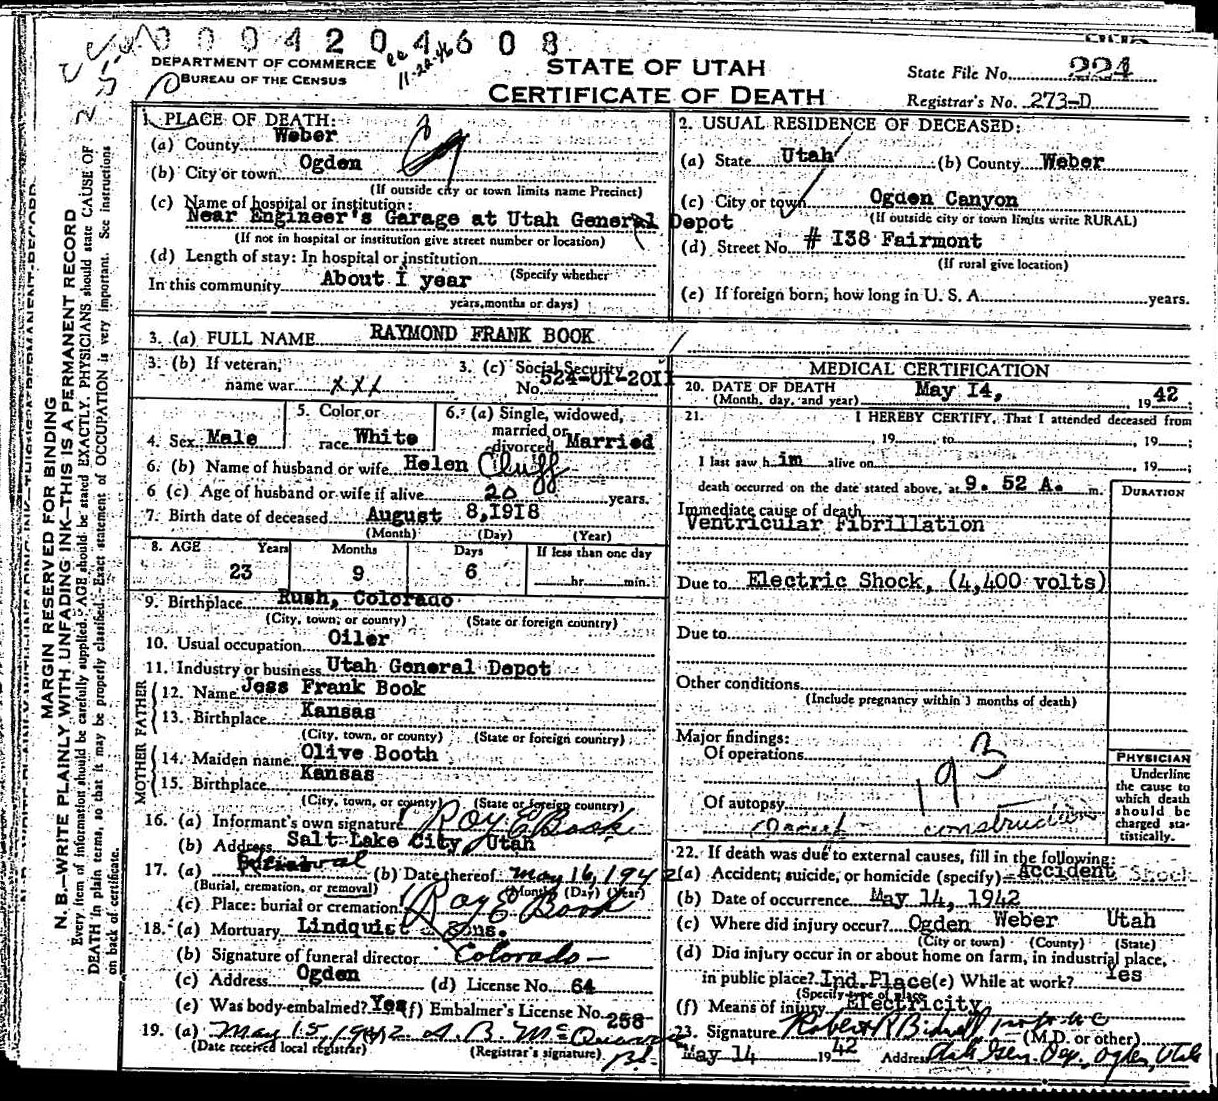 0 0 0 4 2 0 4 6 0 8
DEPARTMENT OF COMMERCE
BUREAU OF THE CENSUS
11-22-46
STATE OF UTAH
CERTIFICATE OF DEATH
State File No. 224
Registrar's No. 273-D
MARGIN RESERVED FOR BINDING
N. B.—WRITE PLAINLY WITH UNFADING INK—THIS IS A PERMANENT RECORD
Every item of information should be carefully supplied. AGE should be stated EXACTLY. PHYSICIANS should state CAUSE OF
DEATH in plain terms, so that it may be properly classified. Exact statement of OCCUPATION is very important. See instructions
on back of certificate.
1. PLACE OF DEATH:
(a) County Weber
(b) City or town Ogden
(If outside city or town limits name Precinct)
(c) Name of hospital or institution:
Near Engineer's Garage at Utah General Depot
(If not in hospital or institution give street number or location)
(d) Length of stay: In hospital or institution
(Specify whether
In this community About I year
years, months or days)
2. USUAL RESIDENCE OF DECEASED:
(a) State Utah (b) County Weber
(c) City or town Ogden Canyon
(If outside city or town limits write RURAL)
(d) Street No. # I38 Fairmont
(If rural give location)
(e) If foreign born, how long in U. S. A. years.
3. (a) FULL NAME RAYMOND FRANK BOOK
3. (b) If veteran,
name war xxx
3. (c) Social Security
No. 524-0I-20II
4. Sex Male
5. Color or
race White
6. (a) Single, widowed,
married or
divorced Married
6. (b) Name of husband or wife Helen Cluff
6 (c) Age of husband or wife if alive 20 years.
7. Birth date of deceased August 8, I9I8
(Month) (Day) (Year)
8. AGE Years Months Days If less than one day
23 9 6 hr. min.
9. Birthplace Rush, Colorado
(City, town, or county) (State or foreign country)
10. Usual occupation Oiler
11. Industry or business Utah General Depot
FATHER
12. Name Jess Frank Book
13. Birthplace Kansas
(City, town, or county) (State or foreign country)
MOTHER
14. Maiden name Olive Booth
15. Birthplace Kansas
(City, town, or county) (State or foreign country)
16. (a) Informant's own signature Roy E Book
(b) Address Salt Lake City, Utah
17. (a) Removal (b) Date thereof May 16, 1942
(Burial, cremation, or removal) (Month) (Day) (Year)
(c) Place: burial or cremation Roy E Book
18. (a) Mortuary Lindquist & Sons.
(b) Signature of funeral director Colorado
(c) Address Ogden (d) License No. 64
(e) Was body embalmed? Yes (f) Embalmer's License No. 258
19. (a) May 15, 1942 A. B. McQuarrie
(Date received local registrar) (Registrar's signature)
MEDICAL CERTIFICATION
20. DATE OF DEATH May I4, 19 42
(Month, day, and year)
21. I HEREBY CERTIFY, That I attended deceased from
, 19 , to , 19 ;
I last saw h im alive on , 19 ;
death occurred on the date stated above, at 9. 52 A. m.
DURATION
Immediate cause of death
Ventricular Fibrillation
Due to Electric Shock, (4,400 volts)
Due to
Other conditions
(Include pregnancy within 3 months of death)
Major findings:
Of operations
193
Of autopsy
construction
PHYSICIAN
Underline
the cause to
which death
should be
charged sta-
tistically.
22. If death was due to external causes, fill in the following:
(a) Accident, suicide, or homicide (specify) Accident Shock
(b) Date of occurrence May 14, 1942
(c) Where did injury occur? Ogden Weber Utah
(City or town) (County) (State)
(d) Did injury occur in or about home on farm, in industrial place,
in public place? Ind. Place (e) While at work? Yes
(Specify type of place)
(f) Means of injury Electricity
23. Signature Robert R Bidwell
(M.D. or other)
May 14 19 42 Address Utah Gen. Dep. Ogden, Utah